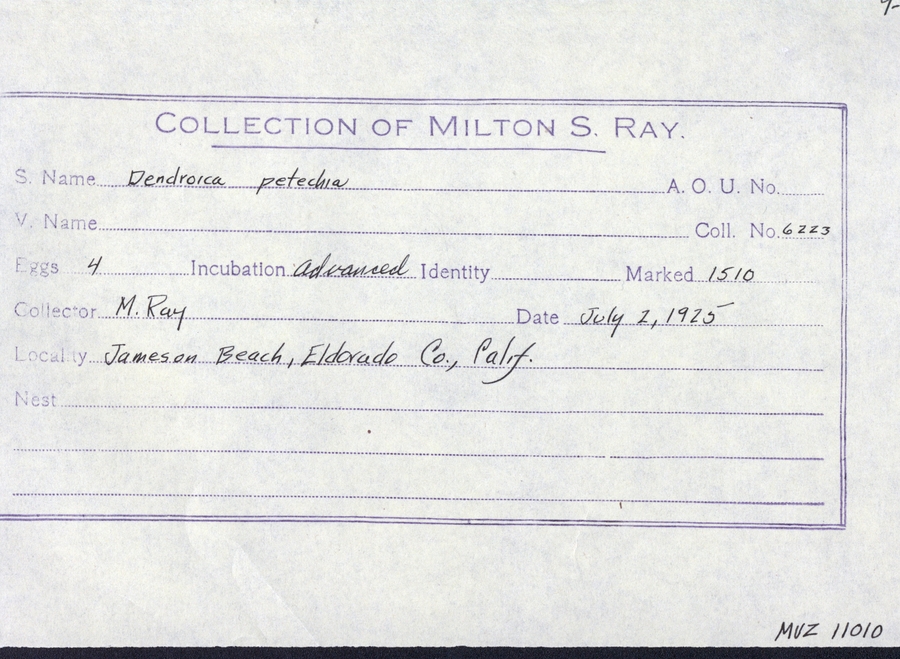 COLLECTION OF MILTON S. RAY.
S. Name Dendroica petechia A. O. U. No.
V. Name Coll. No. 6223
Eggs 4 Incubation advanced Identity Marked 1510
Collector M. Ray Date July 2, 1925
Locality Jameson Beach, Eldorado Co., Calif.
Nest
MVZ 11010